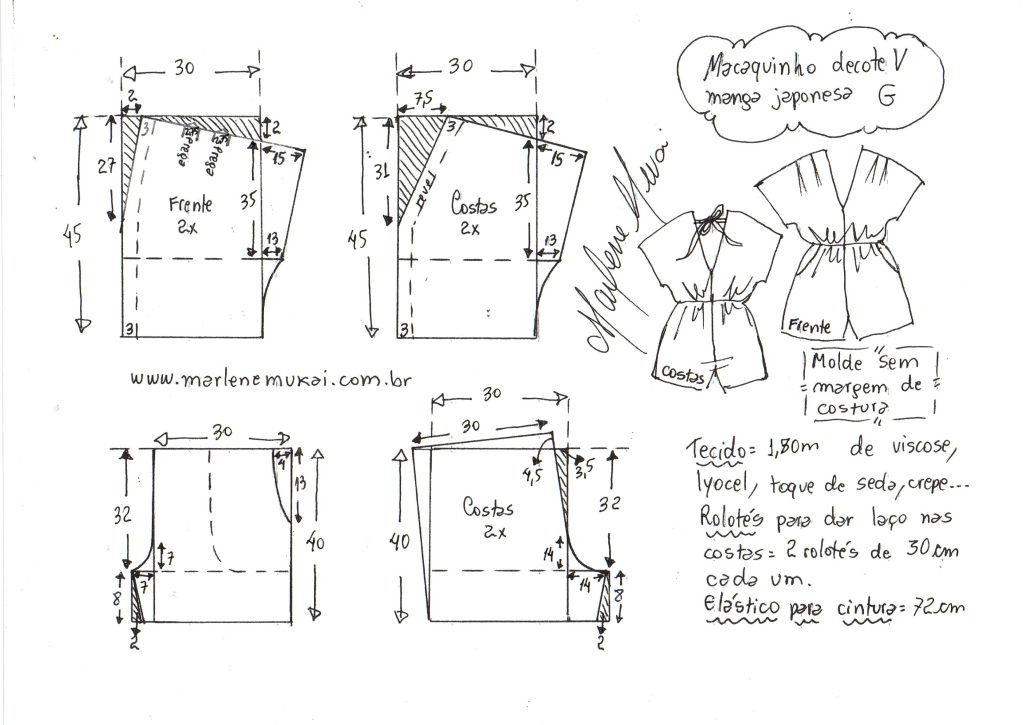 Macaquinho decote V
manga japonesa G
30
2
3
prega
prega
2
15
27
45
35
Frente
2x
13
3
30
7,5
3
2
15
31
45
revel
35
Costas
2x
13
3
Marlene Mukai
Frente
costas
Molde sem
margem de
costura
www.marlenemukai.com.br
30
4
13
32
40
7
7
8
2
30
30
4,5
3,5
32
Costas
2x
40
14
14
8
2
Tecido = 1,80m de viscose,
lyocel, toque de seda, crepe...
Rolotés para dar laço nas
costas = 2 rolotés de 30cm
cada um.
Elástico para cintura = 72cm